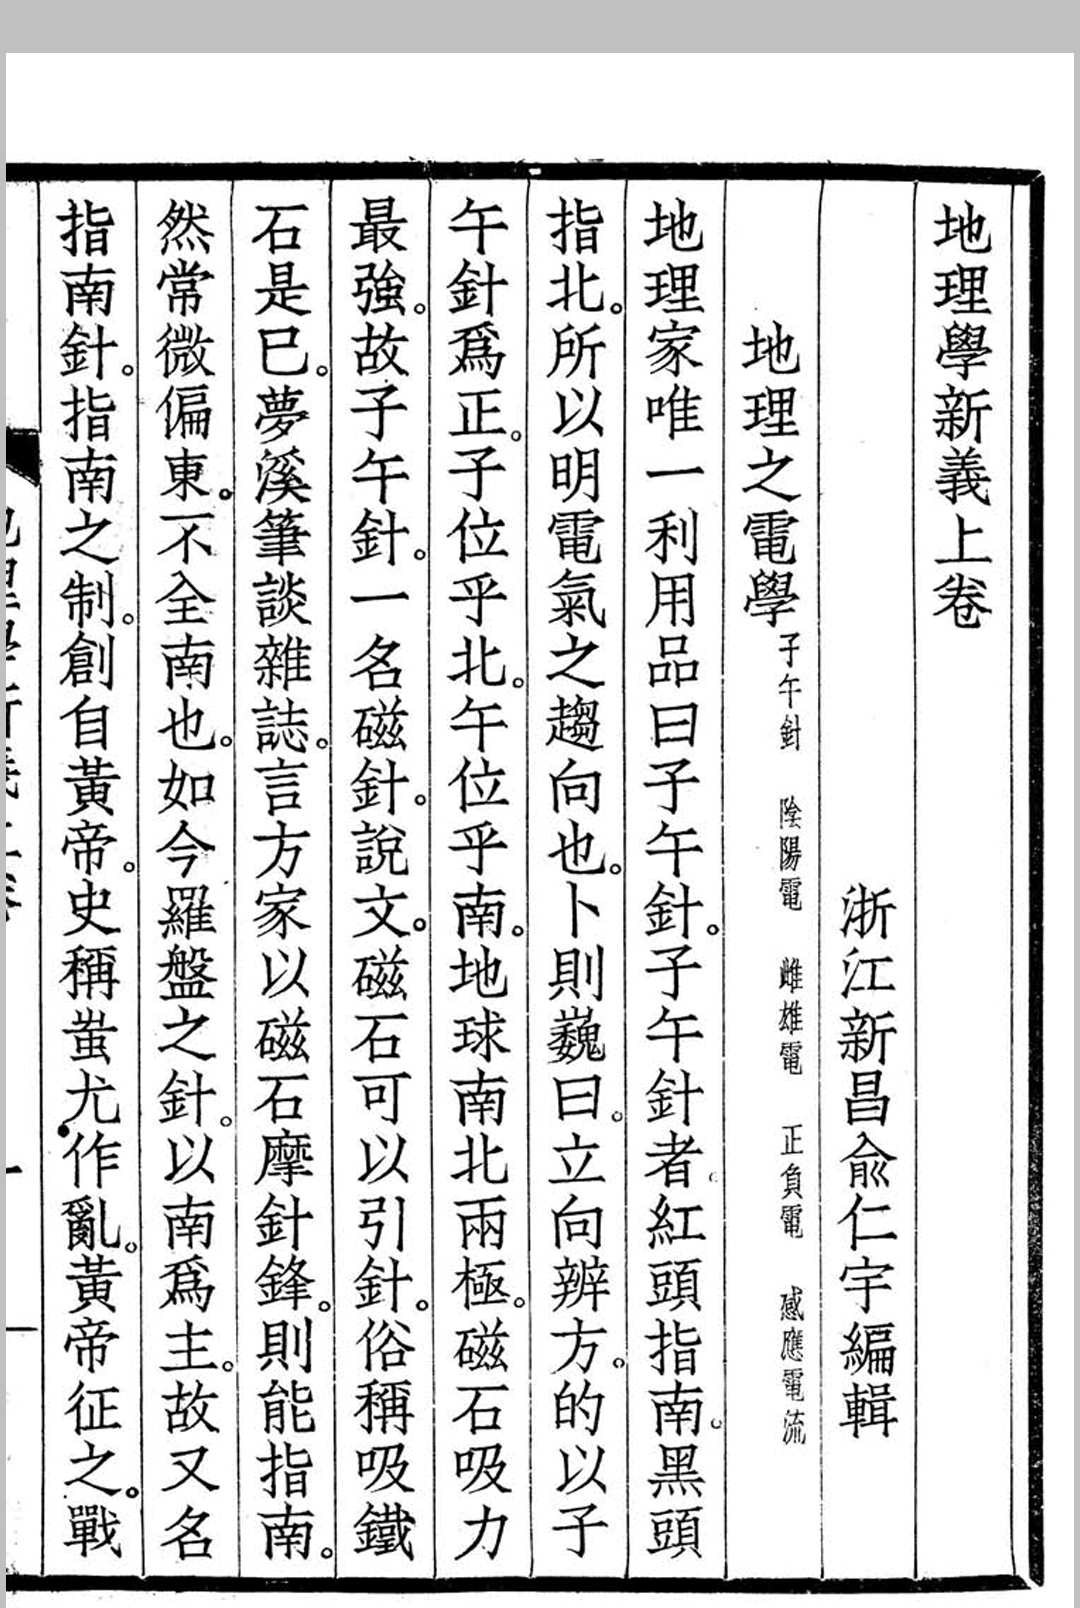 地理學新義上卷
浙江新昌俞仁宇編輯
地理之電學 子午針 陰陽電 雌雄電 正負電 感應電流
地理家唯一利用品曰子午針。子午針者。紅頭指南。黑頭
指北。所以明電氣之趨向也。卜則巍曰。立向辨方。的以子
午針爲正。子位乎北。午位乎南。地球南北兩極。磁石吸力
最強。故子午針。一名磁針。說文。磁石可以引針。俗稱吸鐵
石是已。夢溪筆談雜誌。言方家以磁石摩針鋒。則能指南。
然常微偏東。不全南也。如今羅盤之針。以南爲主。故又名
指南針。指南之制。創自黃帝。史稱蚩尤作亂。黃帝征之。戰